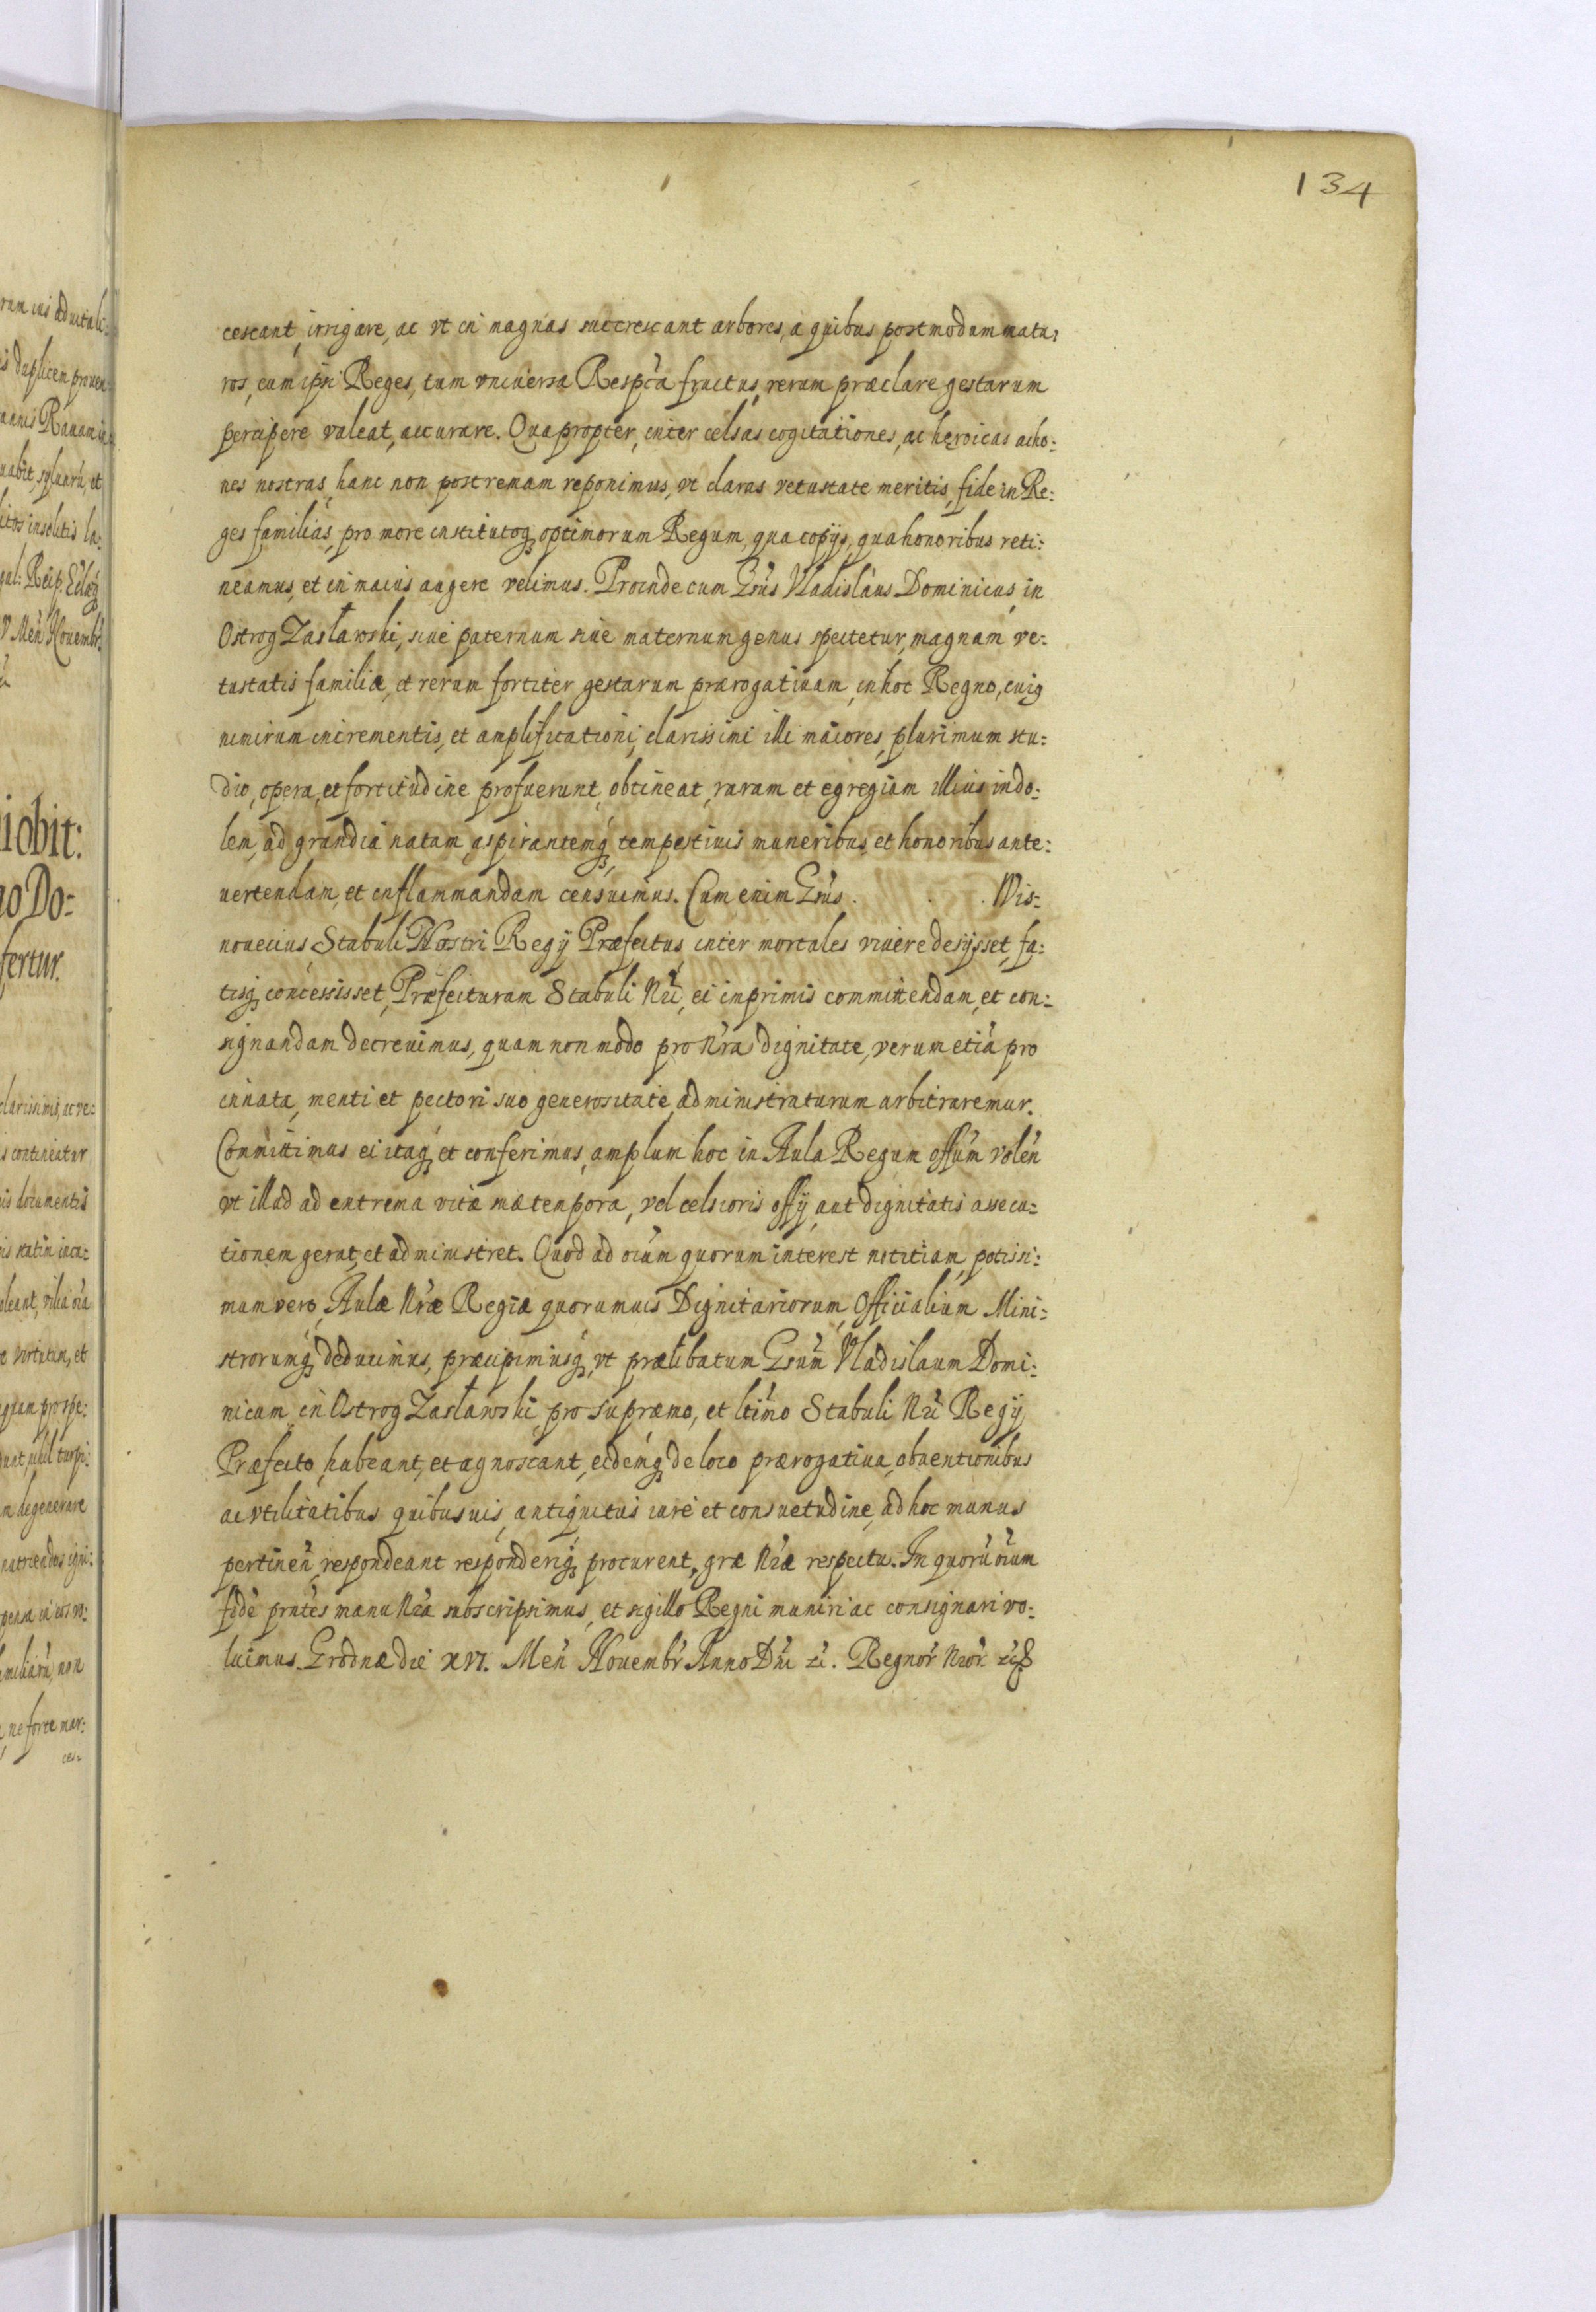 134
cescant, irrigare, ac vt in magnas succrescant arbores, a quibus postmodum matu:
ros, cum ipsi Reges, tum vniuersa Respca fructus, rerum præclare gestarum
percipere valeat, accurare. Quapropter, inter celsas cogitationes, ac heroicas actio:
nes nostras, hanc non postremam reponimus, vt claras vetustate meritis, fide in Re:
ges familias, pro more institutoq optimorum Regum, qua copijs, qua honoribus reti:
neamus, et in maius augere velimus. Proinde cum Grus Vladislaus Dominicus, in
Ostrog Zasławski, siue paternum siue maternum genus spectetur, magnam ve:
tustatis familiæ, et rerum fortiter gestarum prærogatiuam, in hoc Regno, cuig
nimirum incrementis, et amplificationi, clarissimi illi maiores, plurimum stu:
dio, opera, et fortitudine profuerunt, obtineat, raram et egregiam illius indo:
lem, ad grandia natam, aspirantemq, tempestiuis muneribus, et honoribus ante:
uertendam, et inflammandam censuimus. Cum enim Grus . . . Wis:
nouecius Stabuli Nostri Regij Præfectus, inter mortales viuere desijsset, fa:
tisq concessisset, Præfecturam Stabuli Nri, ei inprimis committendam, et con:
signandam decreuimus, quam non modo pro Nra dignitate, verum etiã pro
innata, menti et pectori suo generositate, administraturum arbitraremur.
Committimus ei itaq et conferimus, amplum hoc in Aula Regum offum volen
vt illud ad extrema vitæ suæ tempora, vel celsioris offij, aut dignitatis assecu:
tionem gerat, et administret. Quod ad oium quorum interest notitiam, potissi:
mum vero, Aulæ Nræ Regiæ quorumuis Dignitariorum, Officialium Mini:
strorumq deducimus, præcipimusq, vt prælibatum Grum Vladislaum Domi:
nicum in Ostrog Zasławski, pro supræmo, et ltimo Stabuli Nri Regij
Præfecto, habeant, et agnoscant, eidemq de loco prærogatiua, obuentionibus
ac vtilitatibus quibusuis, antiquitus iure et consuetudine, ad hoc munus
pertinen, respondeant responderiq procurent, græ Nræ respectu. In quorũ oium
fide pntes manu Nra subscripsimus, et sigillo Regni muniri ac consignari vo:
luimus. Grodnæ die XVI. Men Nouembr Anno Dni zc. Regnor Nror zc